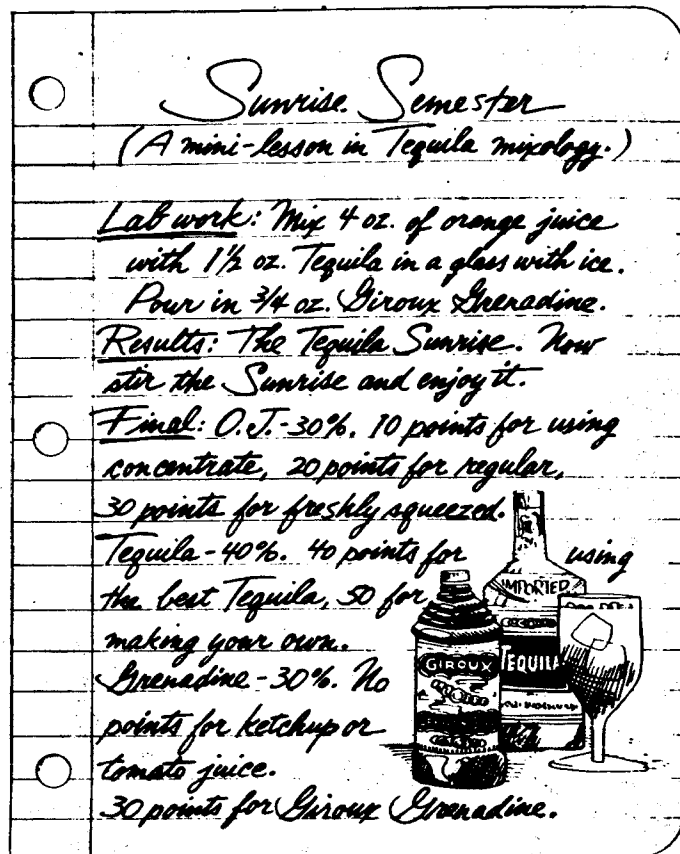 Sunrise Semester
(A mini-lesson in Tequila mixology.)
Lab work: Mix 4 oz. of orange juice
with 1½ oz. Tequila in a glass with ice.
Pour in 3/4 oz. Giroux Grenadine.
Results: The Tequila Sunrise. Now
stir the Sunrise and enjoy it.
Final: O.J.-30%. 10 points for using
concentrate, 20 points for regular,
30 points for freshly squeezed.
Tequila-40%. 40 points for using
the best Tequila, 50 for
making your own.
Grenadine-30%. No
points for ketchup or
tomato juice.
30 points for Giroux Grenadine.
IMPORTED
TEQUILA
GIROUX